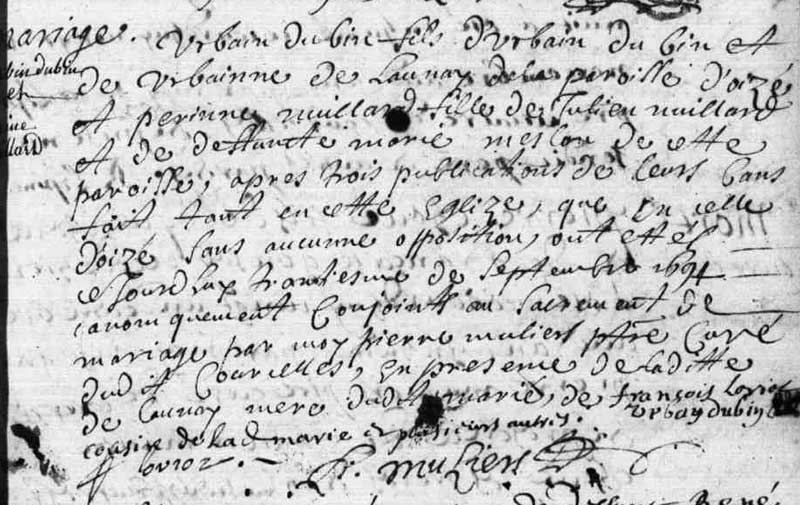 mariage. Urbain du bin fils d'Urbain du bin et
bin dubin de Urbainne de Launay de la paroisse d'oizé
et et perinne nuillard fille de Julien nuillard
et de deffuncte marie meslon de cette
paroisse, apres trois publications de leurs bans
fait tant en cette Eglize, que en celle
d'oizé sans aucunne opposition, ont ettes
ce Jourd huy trantiesme de Septembre 1691
canoniquement Conjoints au Sacrement de
mariage par moy pierre muliers ptre Curé
dudit Courcelles, En presence de laditte
de Launay mere dudit marié, de françois Loriot
Urbay dubin
cousin de la d marie et plusieurs autres.
F. muliers
René